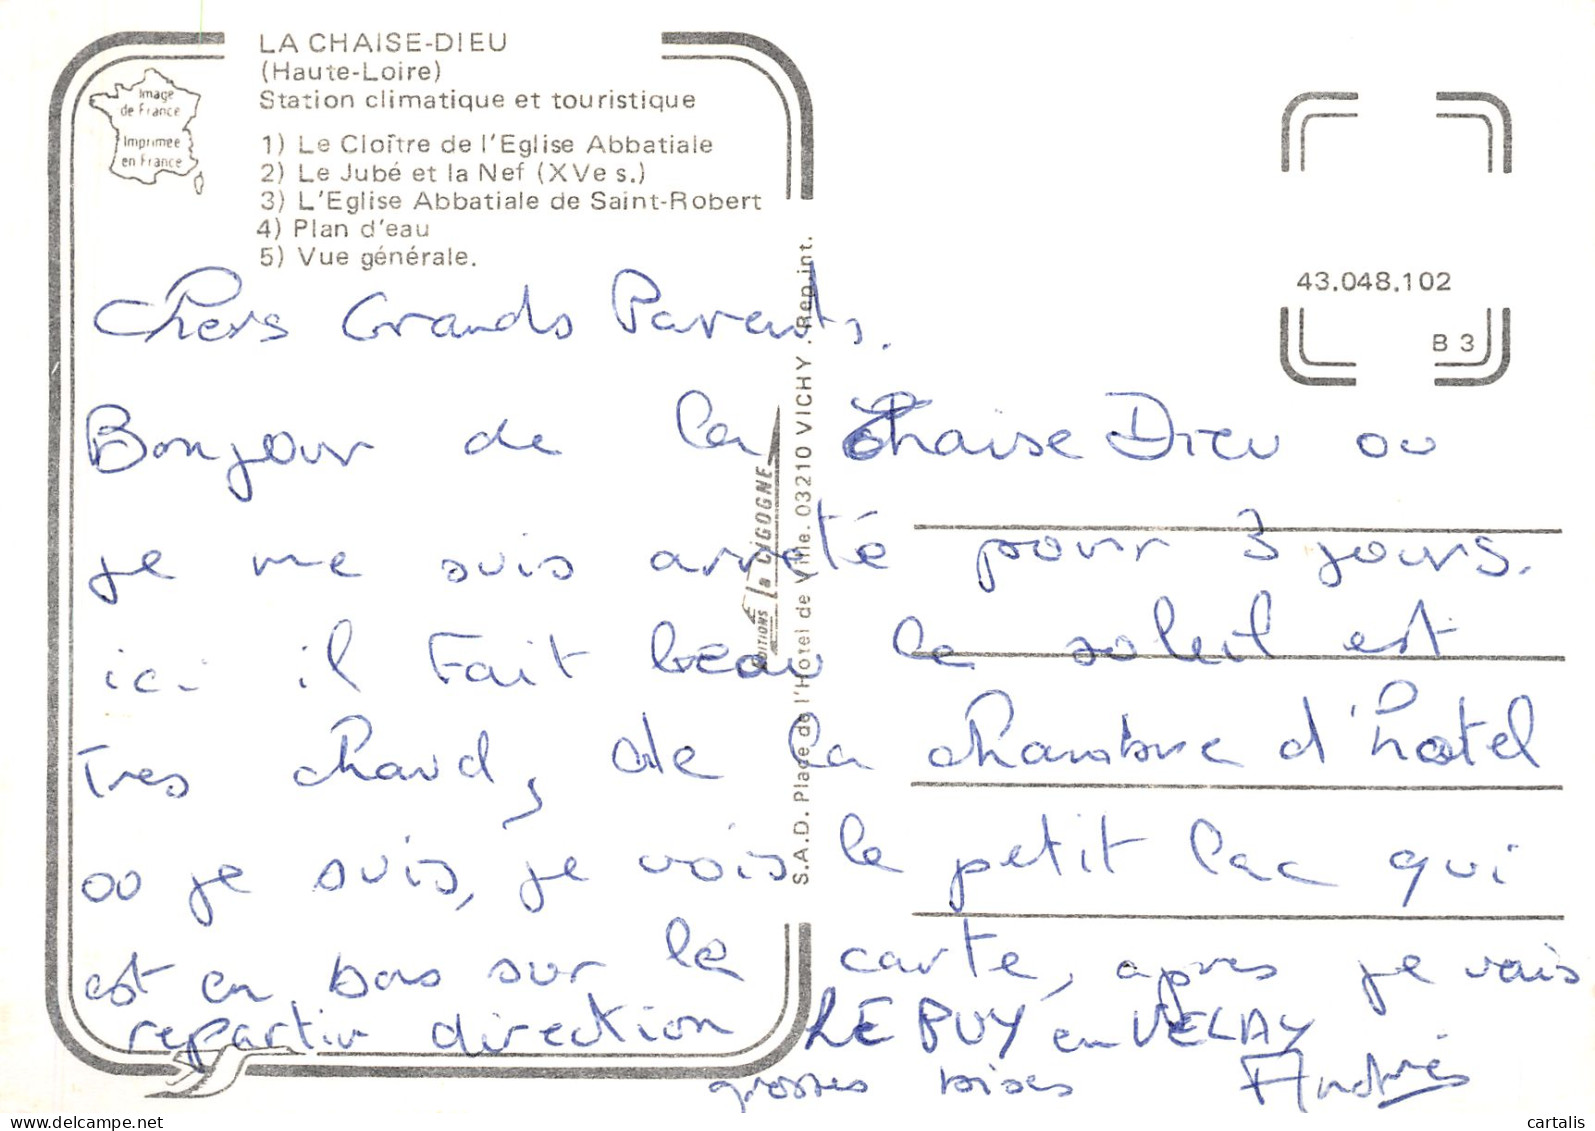 LA CHAISE-DIEU
(Haute-Loire)
Station climatique et touristique
Image
de France
Imprimée
en France
1) Le Cloître de l'Eglise Abbatiale
2) Le Jubé et la Nef (XVe s.)
3) L'Eglise Abbatiale de Saint-Robert
4) Plan d'eau
5) Vue générale.
43.048.102
B 3
EDITIONS la CIGOGNE
S.A.D. Place de l'Hôtel de Ville. 03210 VICHY . Rep.int.
Chers Grands Parents.
Bonjour de la Chaise Dieu ou
je me suis arreté pour 3 jours.
ici il Fait beau le soleil est
Tres chaud, de la chambre d'hotel
ou je suis, je vois le petit lac qui
est en bas sur la carte, apres je vais
repartir direction LE PUY en VELAY
grosses bises Andrés
cartalis